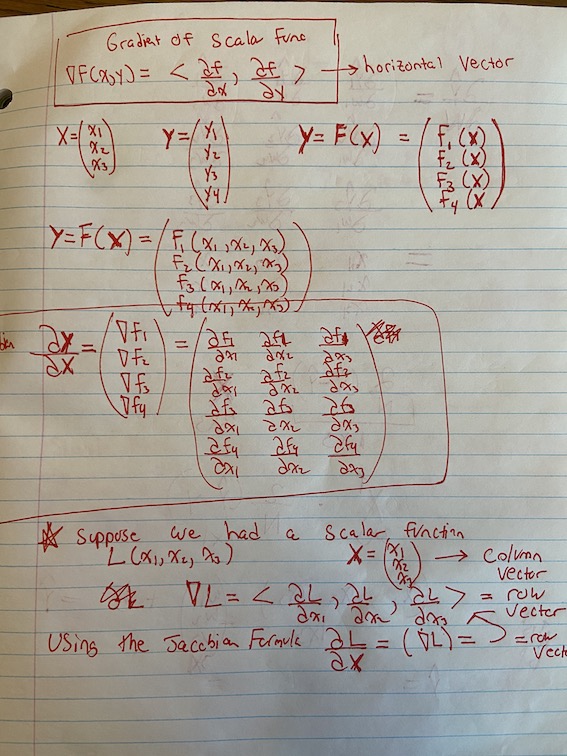 Gradient of Scalar Func
∇F(x,y) = < ∂f/∂x, ∂f/∂y > → horizontal vector
X = (x1 x2 x3) Y = (y1 y2 y3 y4) Y = F(X) = (F1(X) F2(X) F3(X) F4(X))
Y = F(X) = (F1(x1,x2,x3) F2(x1,x2,x3) f3(x1,x2,x3) f4(x1,x2,x3))
∂Y/∂X = (∇f1 ∇f2 ∇f3 ∇f4) = (∂f1/∂x1 ∂f1/∂x2 ∂f1/∂x3
∂f2/∂x1 ∂f2/∂x2 ∂f2/∂x3
∂f3/∂x1 ∂f3/∂x2 ∂f3/∂x3
∂f4/∂x1 ∂f4/∂x2 ∂f4/∂x3)
☆ Suppose we had a scalar function
L(x1, x2, x3) X = (x1 x2 x3) → Column vector
∇L = < ∂L/∂x1, ∂L/∂x2, ∂L/∂x3 > = row vector
Using the Jacobian Formula ∂L/∂X = (∇L) = = row